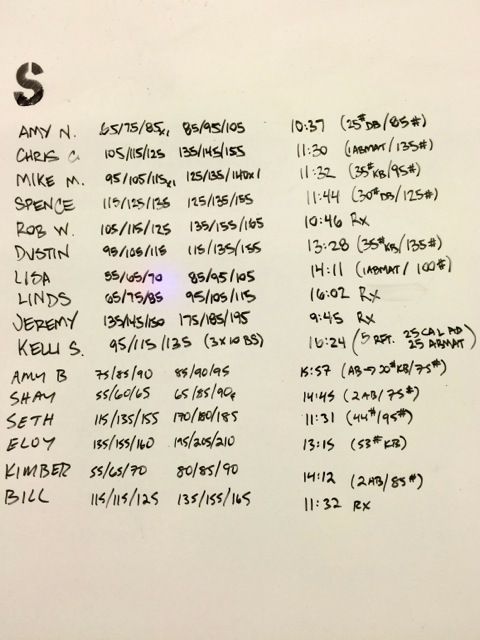 S
AMY N. 65/75/85x1 85/95/105 10:37 (25# DB/85#)
CHRIS C 105/115/125 135/145/155 11:30 (1ABMAT/135#)
MIKE M. 95/105/115x1 125/135/140x1 11:32 (35# KB/95#)
SPENCE 115/125/135 125/135/155 11:44 (30# DB/125#)
ROB W. 105/115/125 135/155/165 10:46 RX
DUSTIN 95/105/115 115/135/155 13:28 (35# KB/135#)
LISA 55/65/70 85/95/105 14:11 (1ABMAT/100#)
LINDS 65/75/85 95/105/115 16:02 RX
JEREMY 135/145/150 175/185/195 9:45 RX
KELLI S. 95/115/135 (3x10 BS) 16:24 (5 RFT. 25 CAL AD
25 ABMAT)
AMY B 75/85/90 85/90/95 15:57 (AB→20# KB/75#)
SHAY 55/60/65 65/85/90 14:45 (2AB/75#)
SETH 115/135/155 170/180/185 11:31 (44#/95#)
ELOY 135/155/160 195/205/210 13:15 (53# KB)
KIMBER 55/65/70 80/85/90 14:12 (2AB/85#)
BILL 115/115/125 135/155/165 11:32 RX